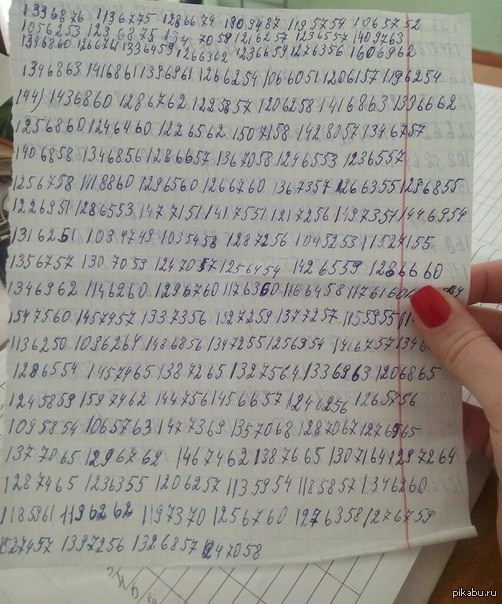 1336876 1136775 1286674 1905487 1185754 1065752
1056253 1236875 134 7059 1216257 1236557 1409763
1346860 126674 1336459 1266362 1236659 1276356 1606962
1346863 1416861 1396961 1266254 1066051 1206157 1196254
144) 1436860 1286762 1225857 1206258 1416863 1336662
1256860 1246460 1276562 1507158 1428057 1346757
1406858 1346856 1286657 1367058 1246553 1236557
1256758 1418860 1296560 1266760 1367357 1266355 1296855
1226951 1286553 1477151 1417551 1217256 1497351 1446954
1316251 1084749 1035458 1287256 1045253 1152455
1356757 1307059 1247057 1256454 1426559 1286660
1346962 1146260 1296760 1176360 1166458
1547560 1457457 1337356 1527259 1377257 1155955
1136250 1096264 1486856 1347255 1256954 1416757
1286554 1457465 1387265 1327564 1336963 1206865
1245859 1597462 1447561456657 1246256 1265756
1095854 1065763 1477369 1357068 1287067 1276965
1377065 1296762 1467462 1387665 1307164 1297264
1287465 1236355 1206257 1135954 1185857 1346260
1185961 1196262 1197370 1256760 1276358 1276759
1527457 1397256 1326857 1247058
pikabu.ru